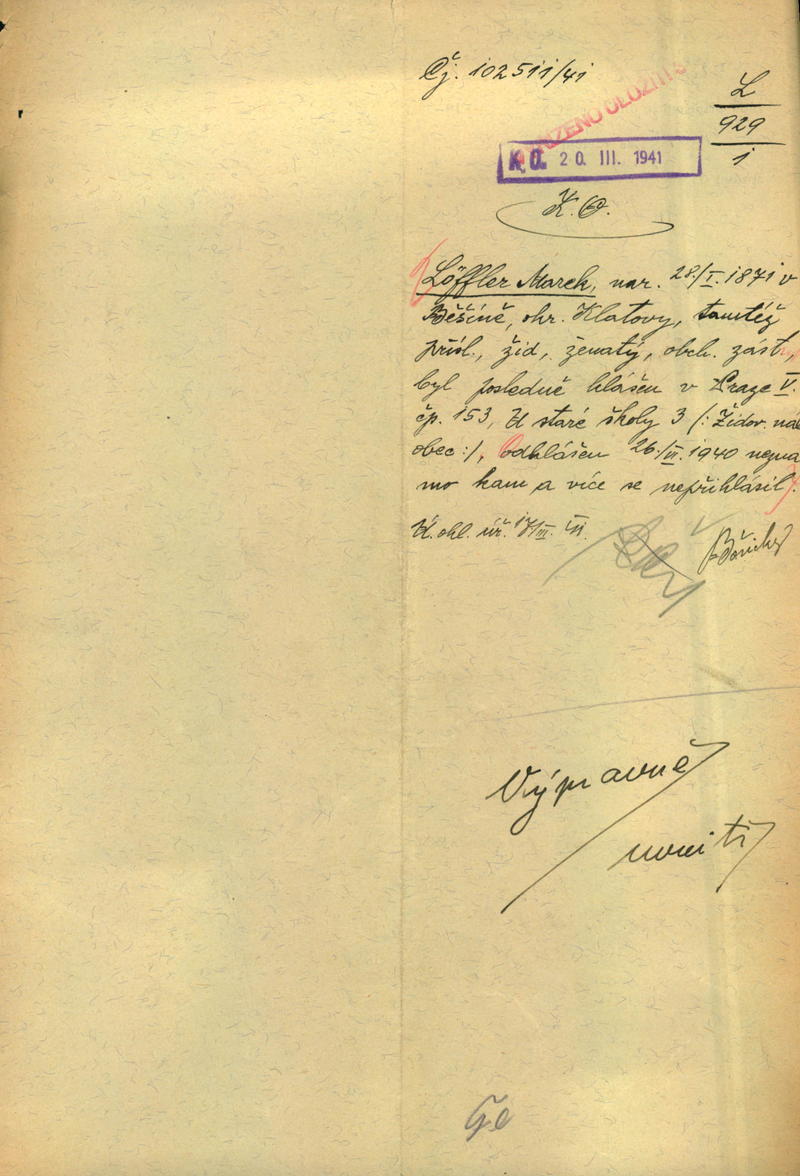 Čj. 102511/41
L
929
1
NAŘÍZENO ULOŽITI
K.O. 20. III. 1941
K.O.
Löffler Marek, nar. 28./I. 1871 v
Běšíně, okr. Klatovy, tamtéž
přísl., žid, ženatý, obch. zást.,
byl posledně hlášen v Praze V.
čp. 153, U staré školy 3 (: Židov. ná
obec :), Odhlášen 26./VI. 1940 nezná
mo kam a více se nepřihlásil.
Ú. ohl. úř. 17/III. 41.
Výpravně